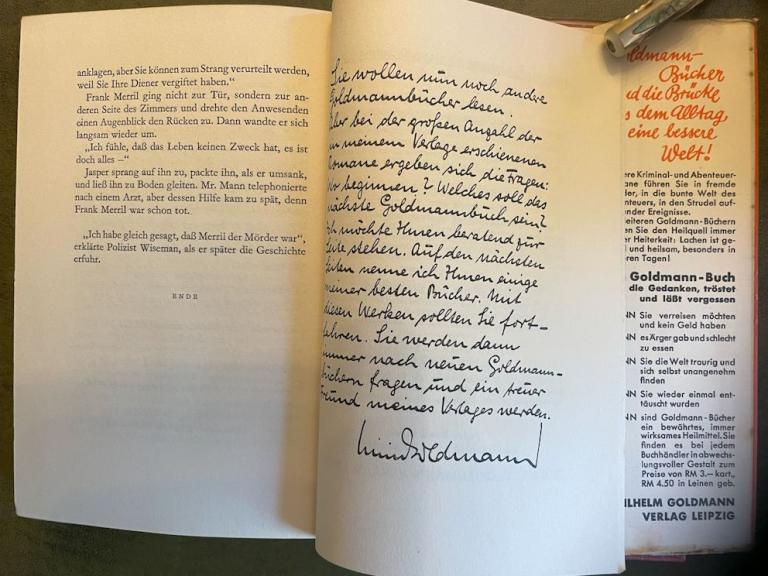 anklagen, aber Sie können zum Strang verurteilt werden,
weil Sie Ihre Diener vergiftet haben.“
Frank Merril ging nicht zur Tür, sondern zur an-
deren Seite des Zimmers und drehte den Anwesenden
einen Augenblick den Rücken zu. Dann wandte er sich
langsam wieder um.
„Ich fühle, daß das Leben keinen Zweck hat, es ist
doch alles —“
Jasper sprang auf ihn zu, packte ihn, als er umsank,
und ließ ihn zu Boden gleiten. Mr. Mann telephonierte
nach einem Arzt, aber dessen Hilfe kam zu spät, denn
Frank Merril war schon tot.
„Ich habe gleich gesagt, daß Merril der Mörder war“,
erklärte Polizist Wiseman, als er später die Geschichte
erfuhr.
ENDE
Sie wollen nun noch andre
Goldmannbücher lesen.
Aber bei der großen Anzahl der
in meinem Verlage erschienenen
Romane ergeben sich die Fragen:
Wo beginnen? Welches soll das
nächste Goldmannbuch sein?
Ich möchte Ihnen beratend zur
Seite stehen. Auf den nächsten
Seiten nenne ich Ihnen einige
meiner besten Bücher. Mit
diesen Werken sollten Sie fort-
fahren. Sie werden dann
immer nach neuen Goldmann-
büchern fragen und ein treuer
Freund meines Verlages werden.
Goldmann
ldmann-
Bücher
d die Brücke
s dem Alltag,
eine bessere
Welt!
ere Kriminal- und Abenteuer-
ane führen Sie in fremde
der, in die bunte Welt des
nteuers, in den Strudel auf-
nder Ereignisse.
eiteren Goldmann-Büchern
en Sie den Heilquell immer
r Heiterkeit: Lachen ist ge-
und heilsam, besonders in
ren Tagen!
Goldmann-Buch
die Gedanken, tröstet
und läßt vergessen
NN Sie verreisen möchten
und kein Geld haben
NN es Ärger gab und schlecht
zu essen
NN Sie die Welt traurig und
sich selbst unangenehm
finden
NN Sie wieder einmal ent-
täuscht wurden
NN sind Goldmann-Bücher
ein bewährtes, immer
wirksames Heilmittel. Sie
finden es bei jedem
Buchhändler in abwechs-
lungsvoller Gestalt zum
Preise von RM 3.— kart.,
RM 4.50 in Leinen geb.
ILHELM GOLDMANN
VERLAG LEIPZIG